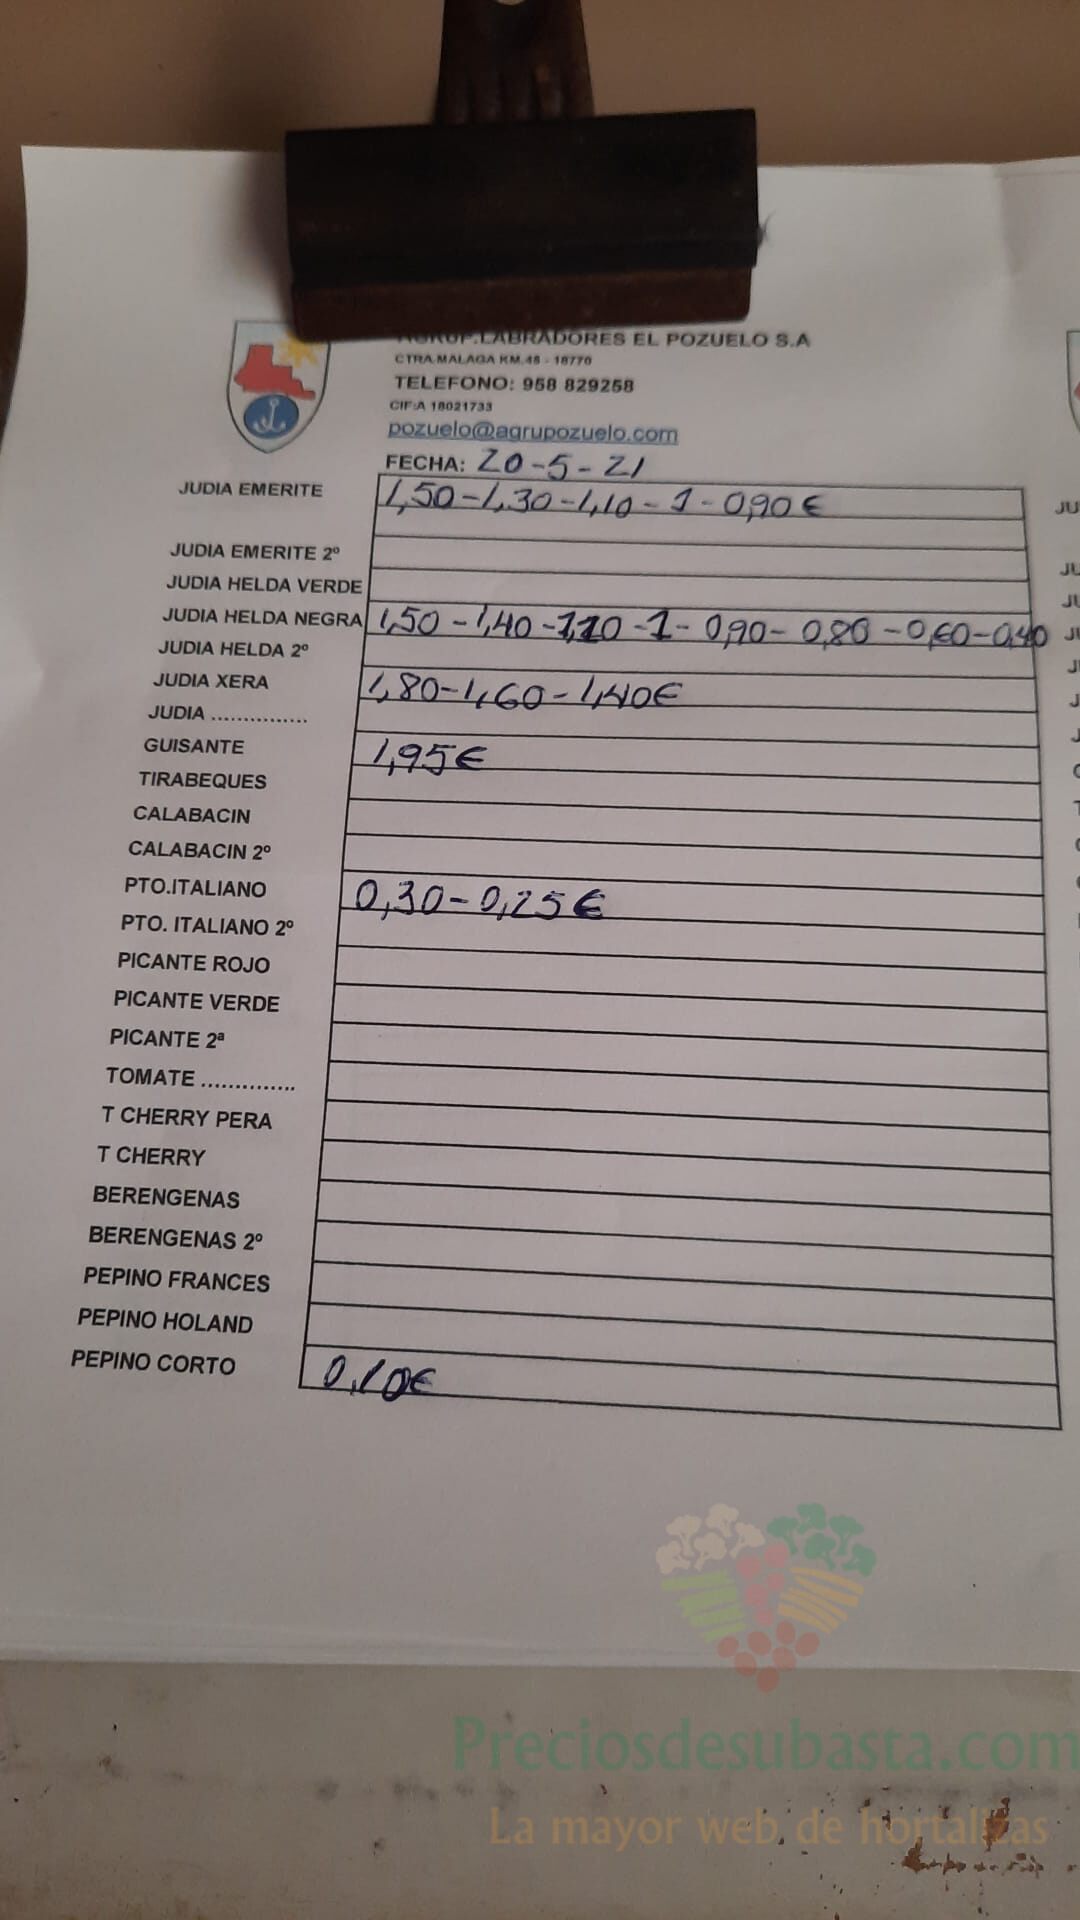 AGRUP.LABRADORES EL POZUELO S.A
CTRA.MALAGA KM.48 - 18770
TELEFONO: 958 829258
CIF:A 18021733
pozuelo@agrupozuelo.com
FECHA: 20-5-21
JUDIA EMERITE 1,50-1,30-1,10-1-0,90€
JUDIA EMERITE 2º
JUDIA HELDA VERDE
JUDIA HELDA NEGRA 1,50-1,40- -1-0,90-0,80-0,60-0,40
JUDIA HELDA 2º
JUDIA XERA 1,80-1,60-1,40€
JUDIA ...............
GUISANTE 1,95€
TIRABEQUES
CALABACIN
CALABACIN 2º
PTO.ITALIANO 0,30-0,25€
PTO. ITALIANO 2º
PICANTE ROJO
PICANTE VERDE
PICANTE 2ª
TOMATE ..............
T CHERRY PERA
T CHERRY
BERENGENAS
BERENGENAS 2º
PEPINO FRANCES
PEPINO HOLAND
PEPINO CORTO 0,10€
Preciosdesubasta.com
La mayor web de hortalizas